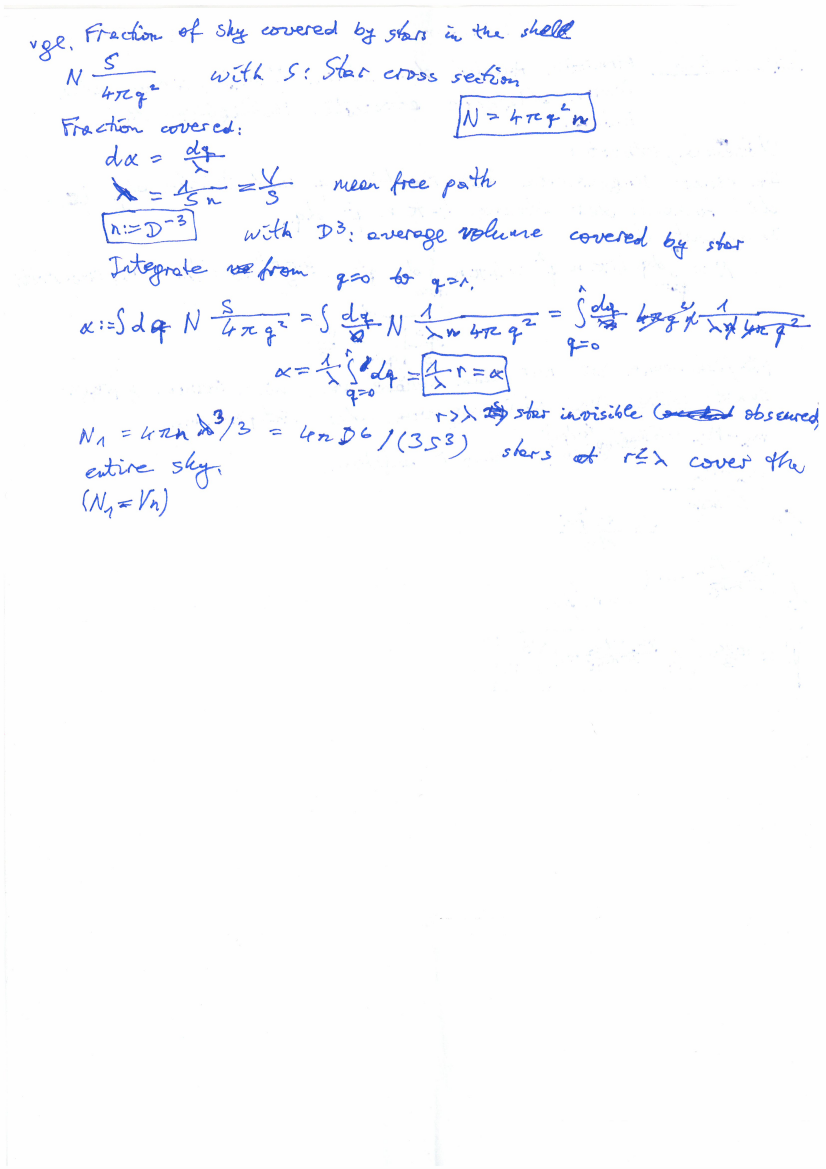 vgl. Fraction of sky covered by stars in the shell
N S/(4πq²) with S: Star cross section
N = 4πq²n
Fraction covered:
dα = dq/λ
λ = 1/(Sn) = V/S mean free path
n := D⁻³ with D³: average volume covered by star
Integrate from q=0 to q=r.
α := ∫dq N S/(4πq²) = ∫dq N 1/(λn4πq²) = ∫_{q=0}^{r} dq 4πq²n 1/(λn4πq²)
α = 1/λ ∫_{q=0}^{r} dq = 1/λ r = α
r>λ star invisible ( obscured,
N₁ = 4πnλ³/3 = 4πD6/(3S3) stars at r≤λ cover the
entire sky.
(N₁ = Vn)